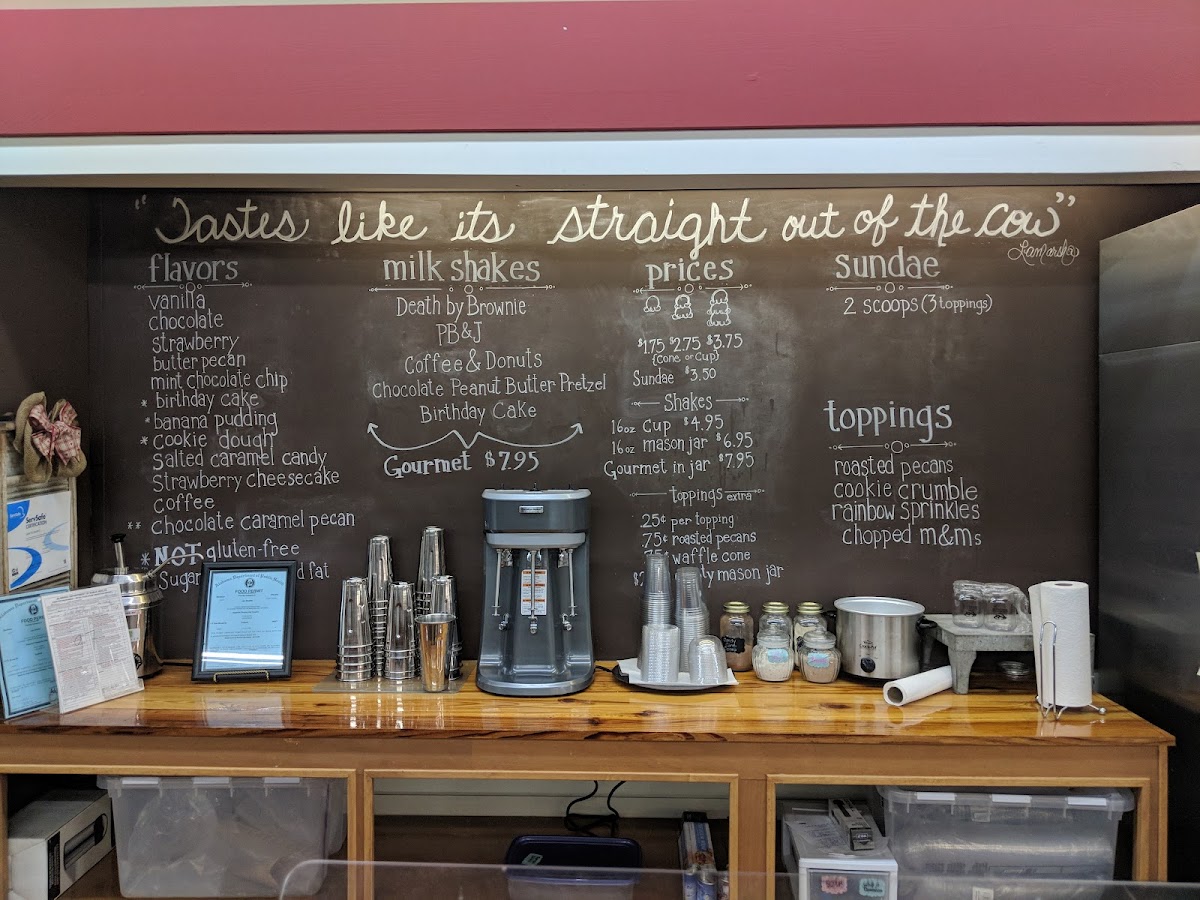 "Tastes like its straight out of the cow"
LaMarsha
flavors
vanilla
chocolate
strawberry
butter pecan
mint chocolate chip
* birthday cake
* banana pudding
* cookie dough
salted caramel candy
Strawberry cheesecake
coffee
** chocolate caramel pecan
* NOT gluten-free
* Sugar d fat
milk shakes
Death by Brownie
PB&J
Coffee & Donuts
Chocolate Peanut Butter Pretzel
Birthday Cake
Gourmet $7.95
prices
$1.75 $2.75 $3.75
{cone or cup}
Sundae $3.50
Shakes
16oz Cup $4.95
16oz mason jar $6.95
Gourmet in jar $7.95
toppings extra
25¢ per topping
75¢ roasted pecans
75¢ waffle cone
ty mason jar
sundae
2 scoops (3 toppings)
toppings
roasted pecans
cookie crumble
rainbow sprinkles
chopped m&ms
ServSafe
FOOD PERMIT